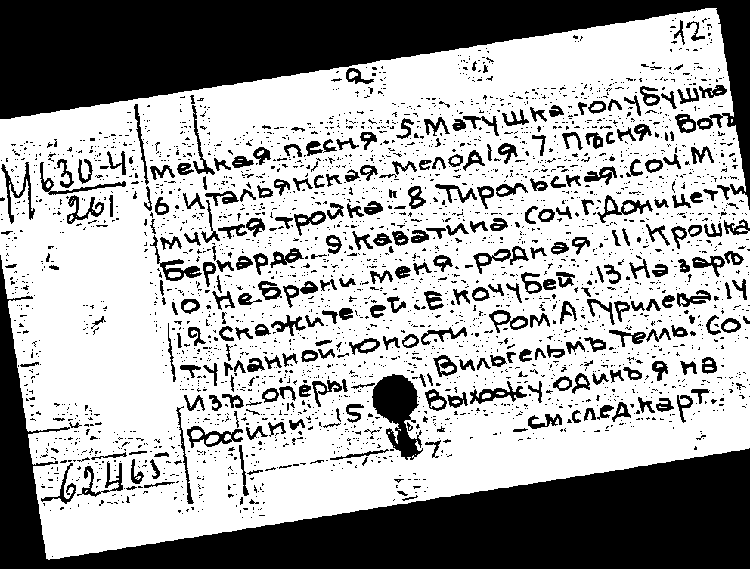 12
2
М 630-4
261
мецкая песня. 5. Матушка голубушка
6. Итальянская мелодiя. 7. Пѣсня. „Вотъ
мчится тройка" 8. Тирольская. соч. М.
Бернарда. 9. Каватина. Соч. Г. Доницетти
10. Не брани меня родная. 11. Крошка
12. Скажите ей. Е. Кочубей. 13. На зарѣ
туманной юности. Ром. А. Гурилева. 14
Изъ оперы „Вильгельмъ Телль". Соч
Россини 15. Выхожу одинъ я на
см. след. карт.
62465